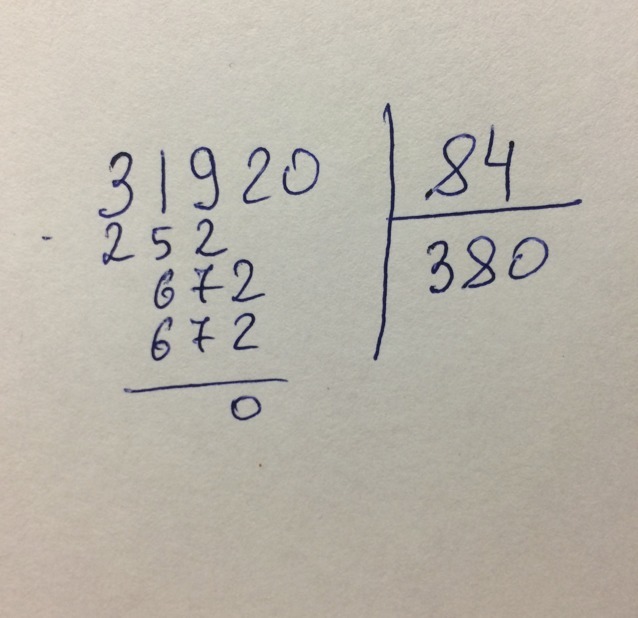 31920 84
- 252 380
672
672
0